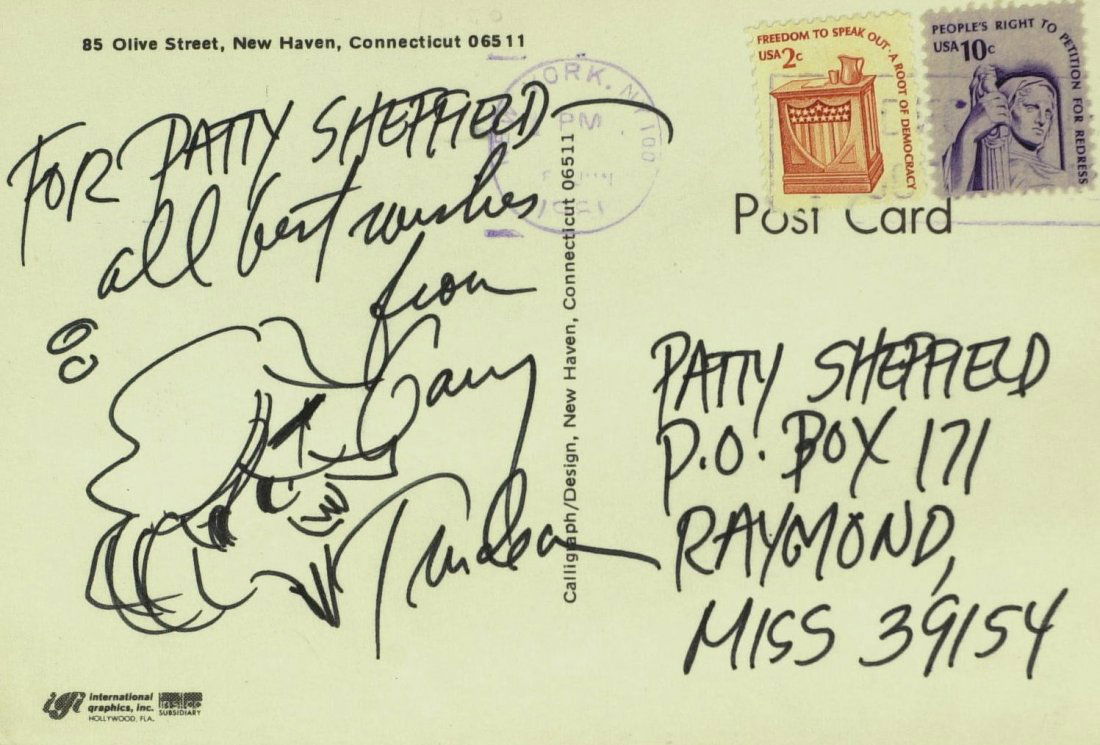 85 Olive Street, New Haven, Connecticut 06511
FREEDOM TO SPEAK OUT · A ROOT OF DEMOCRACY
USA 2c
PEOPLE'S RIGHT TO PETITION FOR REDRESS
USA 10c
YORK, N.Y. 100
PM
1981
FOR PATTY SHEFFIELD
all best wishes
from
Garry
Trudeau
Calligraph/Design, New Haven, Connecticut 06511
Post Card
PATTY SHEFFIELD
P.O. BOX 171
RAYMOND,
MISS 39154
igi international
graphics, inc.
HOLLYWOOD, FLA.
SUBSIDIARY